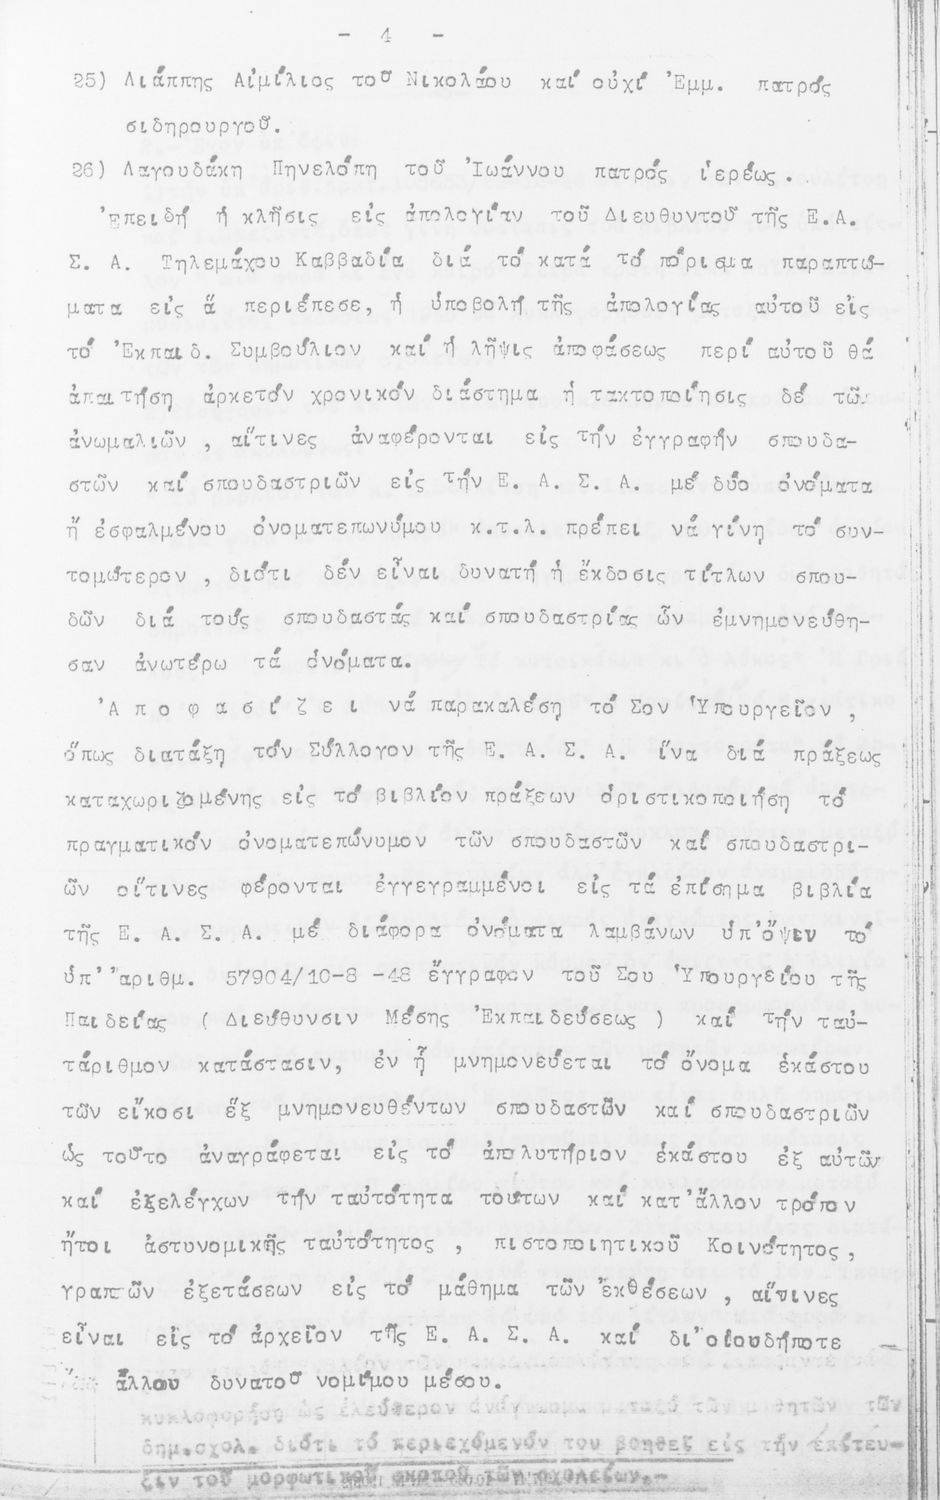 - 4 -
25) Λιάππης Αἰμίλιος τοῦ Νικολάου καί οὐχί Ἐμμ. πατρός
σιδηρουργοῦ.
26) Λαγουδάκη Πηνελόπη τοῦ Ἰωάννου πατρός ἱερέως.
Ἐπειδή ἡ κλῆσις εἰς ἀπολογίαν τοῦ Διευθυντοῦ τῆς Ε.Α.
Σ. Α. Τηλεμάχου Καββαδία διά τό κατά τό πόρισμα παραπτώ-
ματα εἰς ἅ περιέπεσε, ἡ ὑποβολή τῆς ἀπολογίας αὐτοῦ εἰς
τό Ἐκπαιδ. Συμβούλιον καί ἡ λῆψις ἀποφάσεως περί αὐτοῦ θά
ἀπαιτήση ἀρκετόν χρονικόν διάστημα ἡ τακτοποίησις δέ τῶν
ἀνωμαλιῶν , αἵτινες ἀναφέρονται εἰς τήν ἐγγραφήν σπουδα-
στῶν καί σπουδαστριῶν εἰς τήν Ε. Α. Σ. Α. μέ δύο ὀνόματα
ἤ ἐσφαλμένου ὀνοματεπωνύμου κ.τ.λ. πρέπει νά γίνη τό συν-
τομώτερον , διότι δέν εἶναι δυνατή ἡ ἔκδοσις τίτλων σπου-
δῶν διά τούς σπουδαστάς καί σπουδαστρίας ὧν ἐμνημονεύθη-
σαν ἀνωτέρω τά ὀνόματα.
Ἀ π ο φ α σ ί ζ ε ι νά παρακαλέση τό Σον Ὑπουργεῖον ,
ὅπως διατάξη τόν Σύλλογον τῆς Ε. Α. Σ. Α. ἵνα διά πράξεως
καταχωριζομένης εἰς τό βιβλίον πράξεων ὁριστικοποιήση τό
πραγματικόν ὀνοματεπώνυμον τῶν σπουδαστῶν καί σπουδαστρι-
ῶν οἵτινες φέρονται ἐγγεγραμμένοι εἰς τά ἐπίσημα βιβλία
τῆς Ε. Α. Σ. Α. μέ διάφορα ὀνόματα λαμβάνων ὑπ' ὄψιν τό
ὑπ' ἀριθμ. 57904/10-8 -48 ἔγγραφον τοῦ Σου Ὑπουργείου τῆς
Παιδείας ( Διεύθυνσιν Μέσης Ἐκπαιδεύσεως ) καί τήν ταὐ-
τάριθμον κατάστασιν, ἐν ᾗ μνημονεύεται τό ὄνομα ἑκάστου
τῶν εἴκοσι ἕξ μνημονευθέντων σπουδαστῶν καί σπουδαστριῶν
ὡς τοῦτο ἀναγράφεται εἰς τό ἀπολυτήριον ἑκάστου ἐξ αὐτῶν
καί ἐξελέγχων τήν ταὐτότητα τούτων καί κατ' ἄλλον τρόπον
ἤτοι ἀστυνομικῆς ταὐτότητος , πιστοποιητικοῦ Κοινότητος ,
γραπτῶν ἐξετάσεων εἰς τό μάθημα τῶν Ἐκθέσεων , αἵτινες
εἶναι εἰς τό ἀρχεῖον τῆς Ε. Α. Σ. Α. καί δι' οἱουδήποτε
ἄλλου δυνατοῦ νομίμου μέσου.
κυκλοφορήση ὡς ἐλεύθερον ἀνάγνωσμα μεταξύ τῶν μαθητῶν τῶν
δημ.σχολ. διότι τό περιεχόμενόν του βοηθεῖ εἰς τήν ἐπίτευ-
ξιν τοῦ μορφωτικοῦ σκοποῦ τῶν σχολείων.-